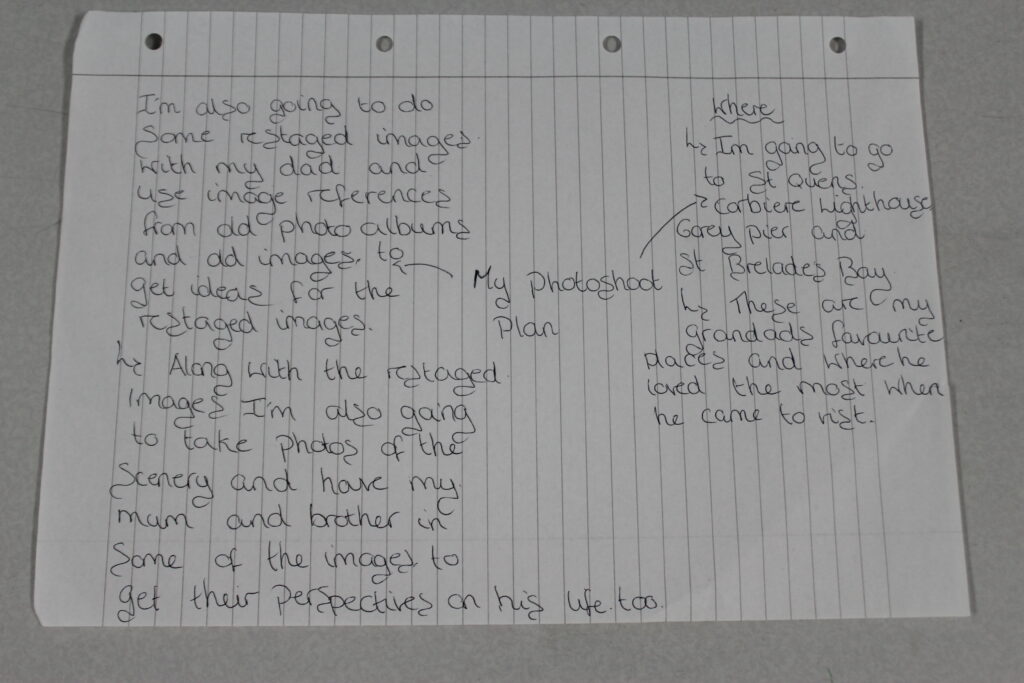 I'm also going to do
some restaged images
with my dad and
use image references
from old photo albums
and old images. to
get ideas for the
restaged images.
↳ Along with the restaged
images I'm also going
to take photos of the
scenery and have my
mum and brother in
some of the images to
get their perspectives on his life too.
My photoshoot
plan
Where
↳ I'm going to go
to St Ouens.
Corbiere Lighthouse
Gorey pier and
St Brelades Bay.
↳ These are my
grandads favourite
places and where he
loved the most when
he came to visit.